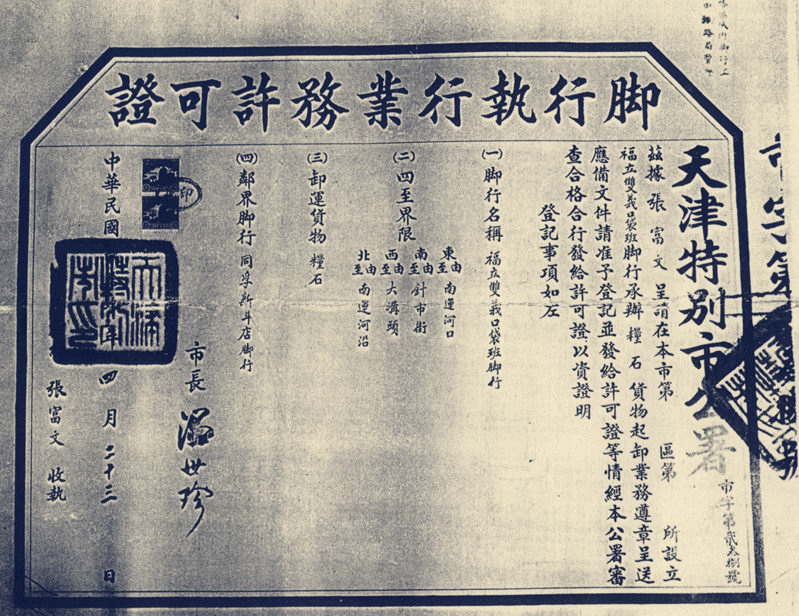 脚行執行業務許可證
天津特別市公署
市字第貳叁捌號
茲據張富文呈請在本市第 區第 所設立
福立雙義口袋班脚行承辦糧石貨物起卸業務遵章呈送
應備文件請准予登記並發給許可證等情經本公署審
查合格合行發給許可證以資證明
登記事項如左
㈠脚行名稱 福立雙義口袋班脚行
㈡四至界限
東由至南運河口
南由至針市街
西由至大溝頭
北由至南運河沿
㈢卸運貨物 糧石
㈣鄰界脚行 同孚新斗店脚行
市長 溫世珍
中華民國 四月二十三日
張富文 收執
市字第